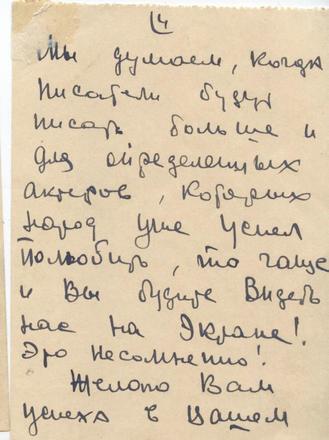 14
Мы думаем, когда
писатели будут
писать больше и
для определенных
актеров, которых
народ уже успел
полюбить, то чаще
и Вы будите видеть
нас на экране!
Это несомненно!
Желаю Вам
успеха в Вашем